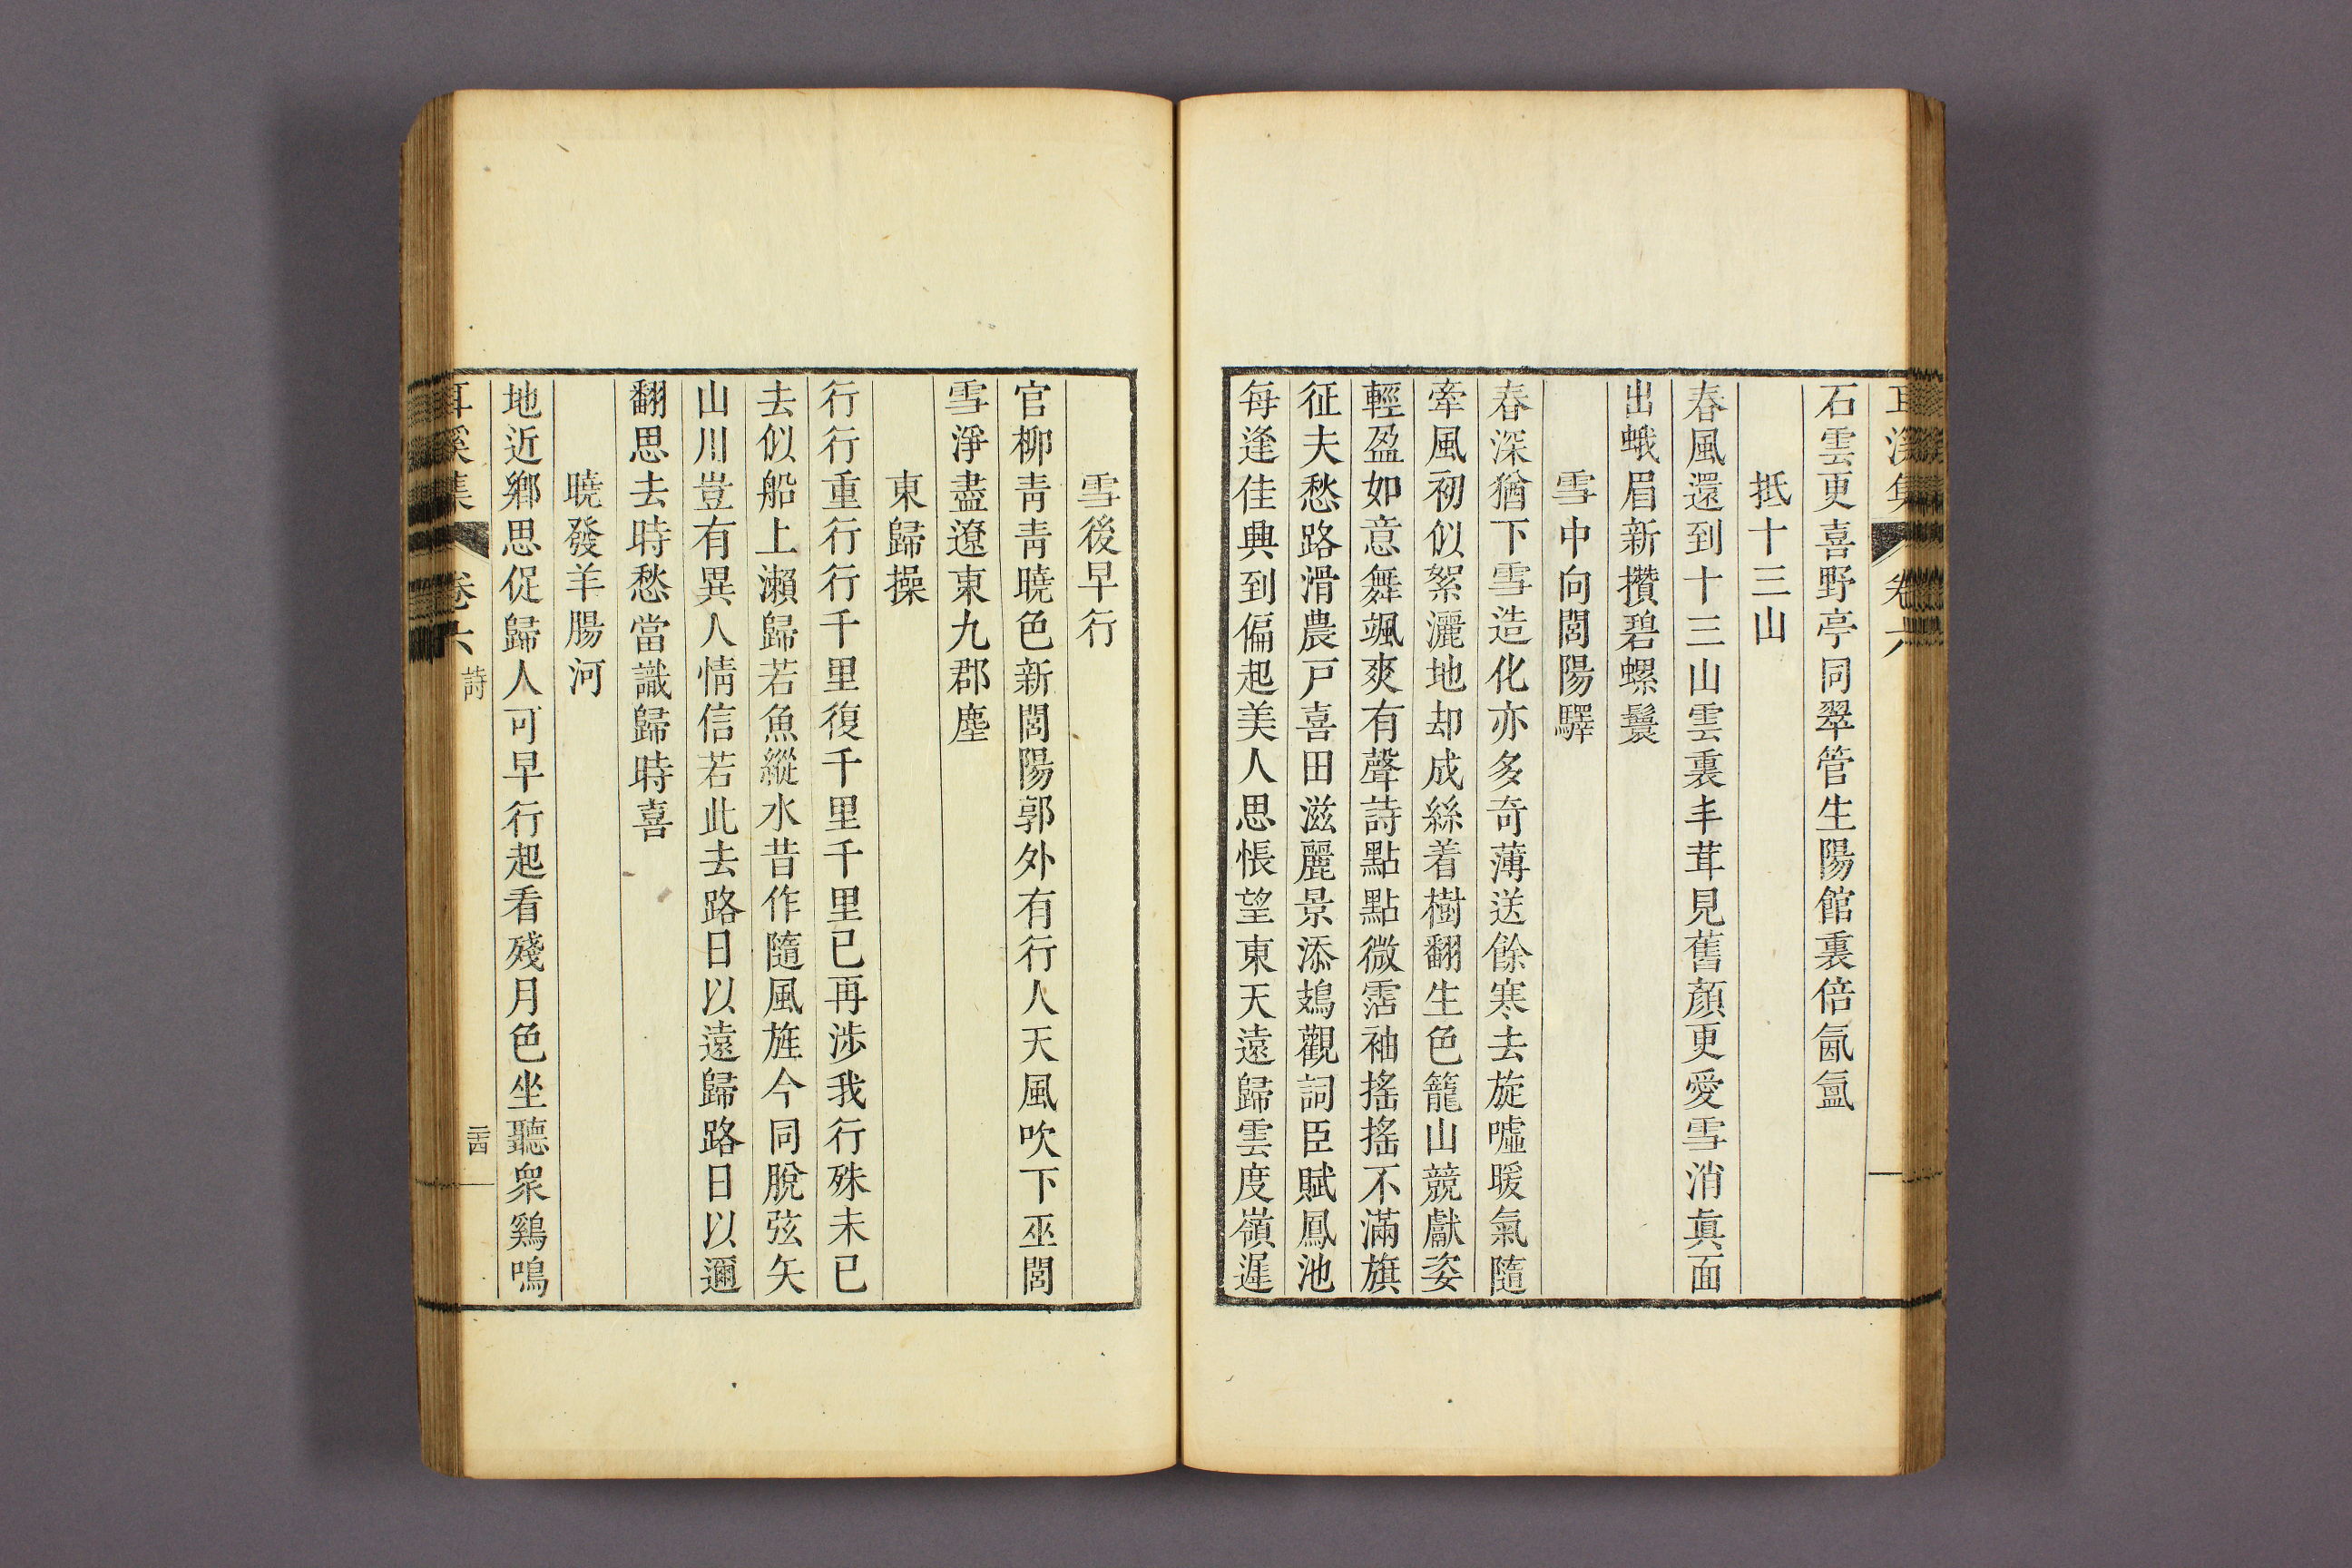 耳溪集 卷六
石雲更喜野亭同翠管生陽館裏倍氤氳
抵十三山
春風還到十三山雲裏丰茸見舊顏更愛雪消眞面
出蛾眉新攢碧螺鬟
雪中向閭陽驛
春深猶下雪造化亦多奇薄送餘寒去旋噓暖氣隨
牽風初似絮灑地却成絲着樹翻生色籠山競獻姿
輕盈如意舞颯爽有聲詩點點微霑袖搖搖不滿旗
征夫愁路滑農戶喜田滋麗景添鳷觀詞臣賦鳳池
每逢佳興到偏起美人思悵望東天遠歸雲度嶺遲
雪後早行
官柳靑靑曉色新閭陽郭外有行人天風吹下巫閭
雪淨盡遼東九郡塵
東歸操
行行重行行千里復千里千里已再涉我行殊未已
去似船上瀨歸若魚縱水昔作隨風旌今同脫弦矢
山川豈有異人情信若此去路日以遠歸路日以邇
翻思去時愁當識歸時喜
曉發羊腸河
地近鄕思促歸人可早行起看殘月色坐聽衆鷄鳴
耳溪集 卷六 詩 二十四